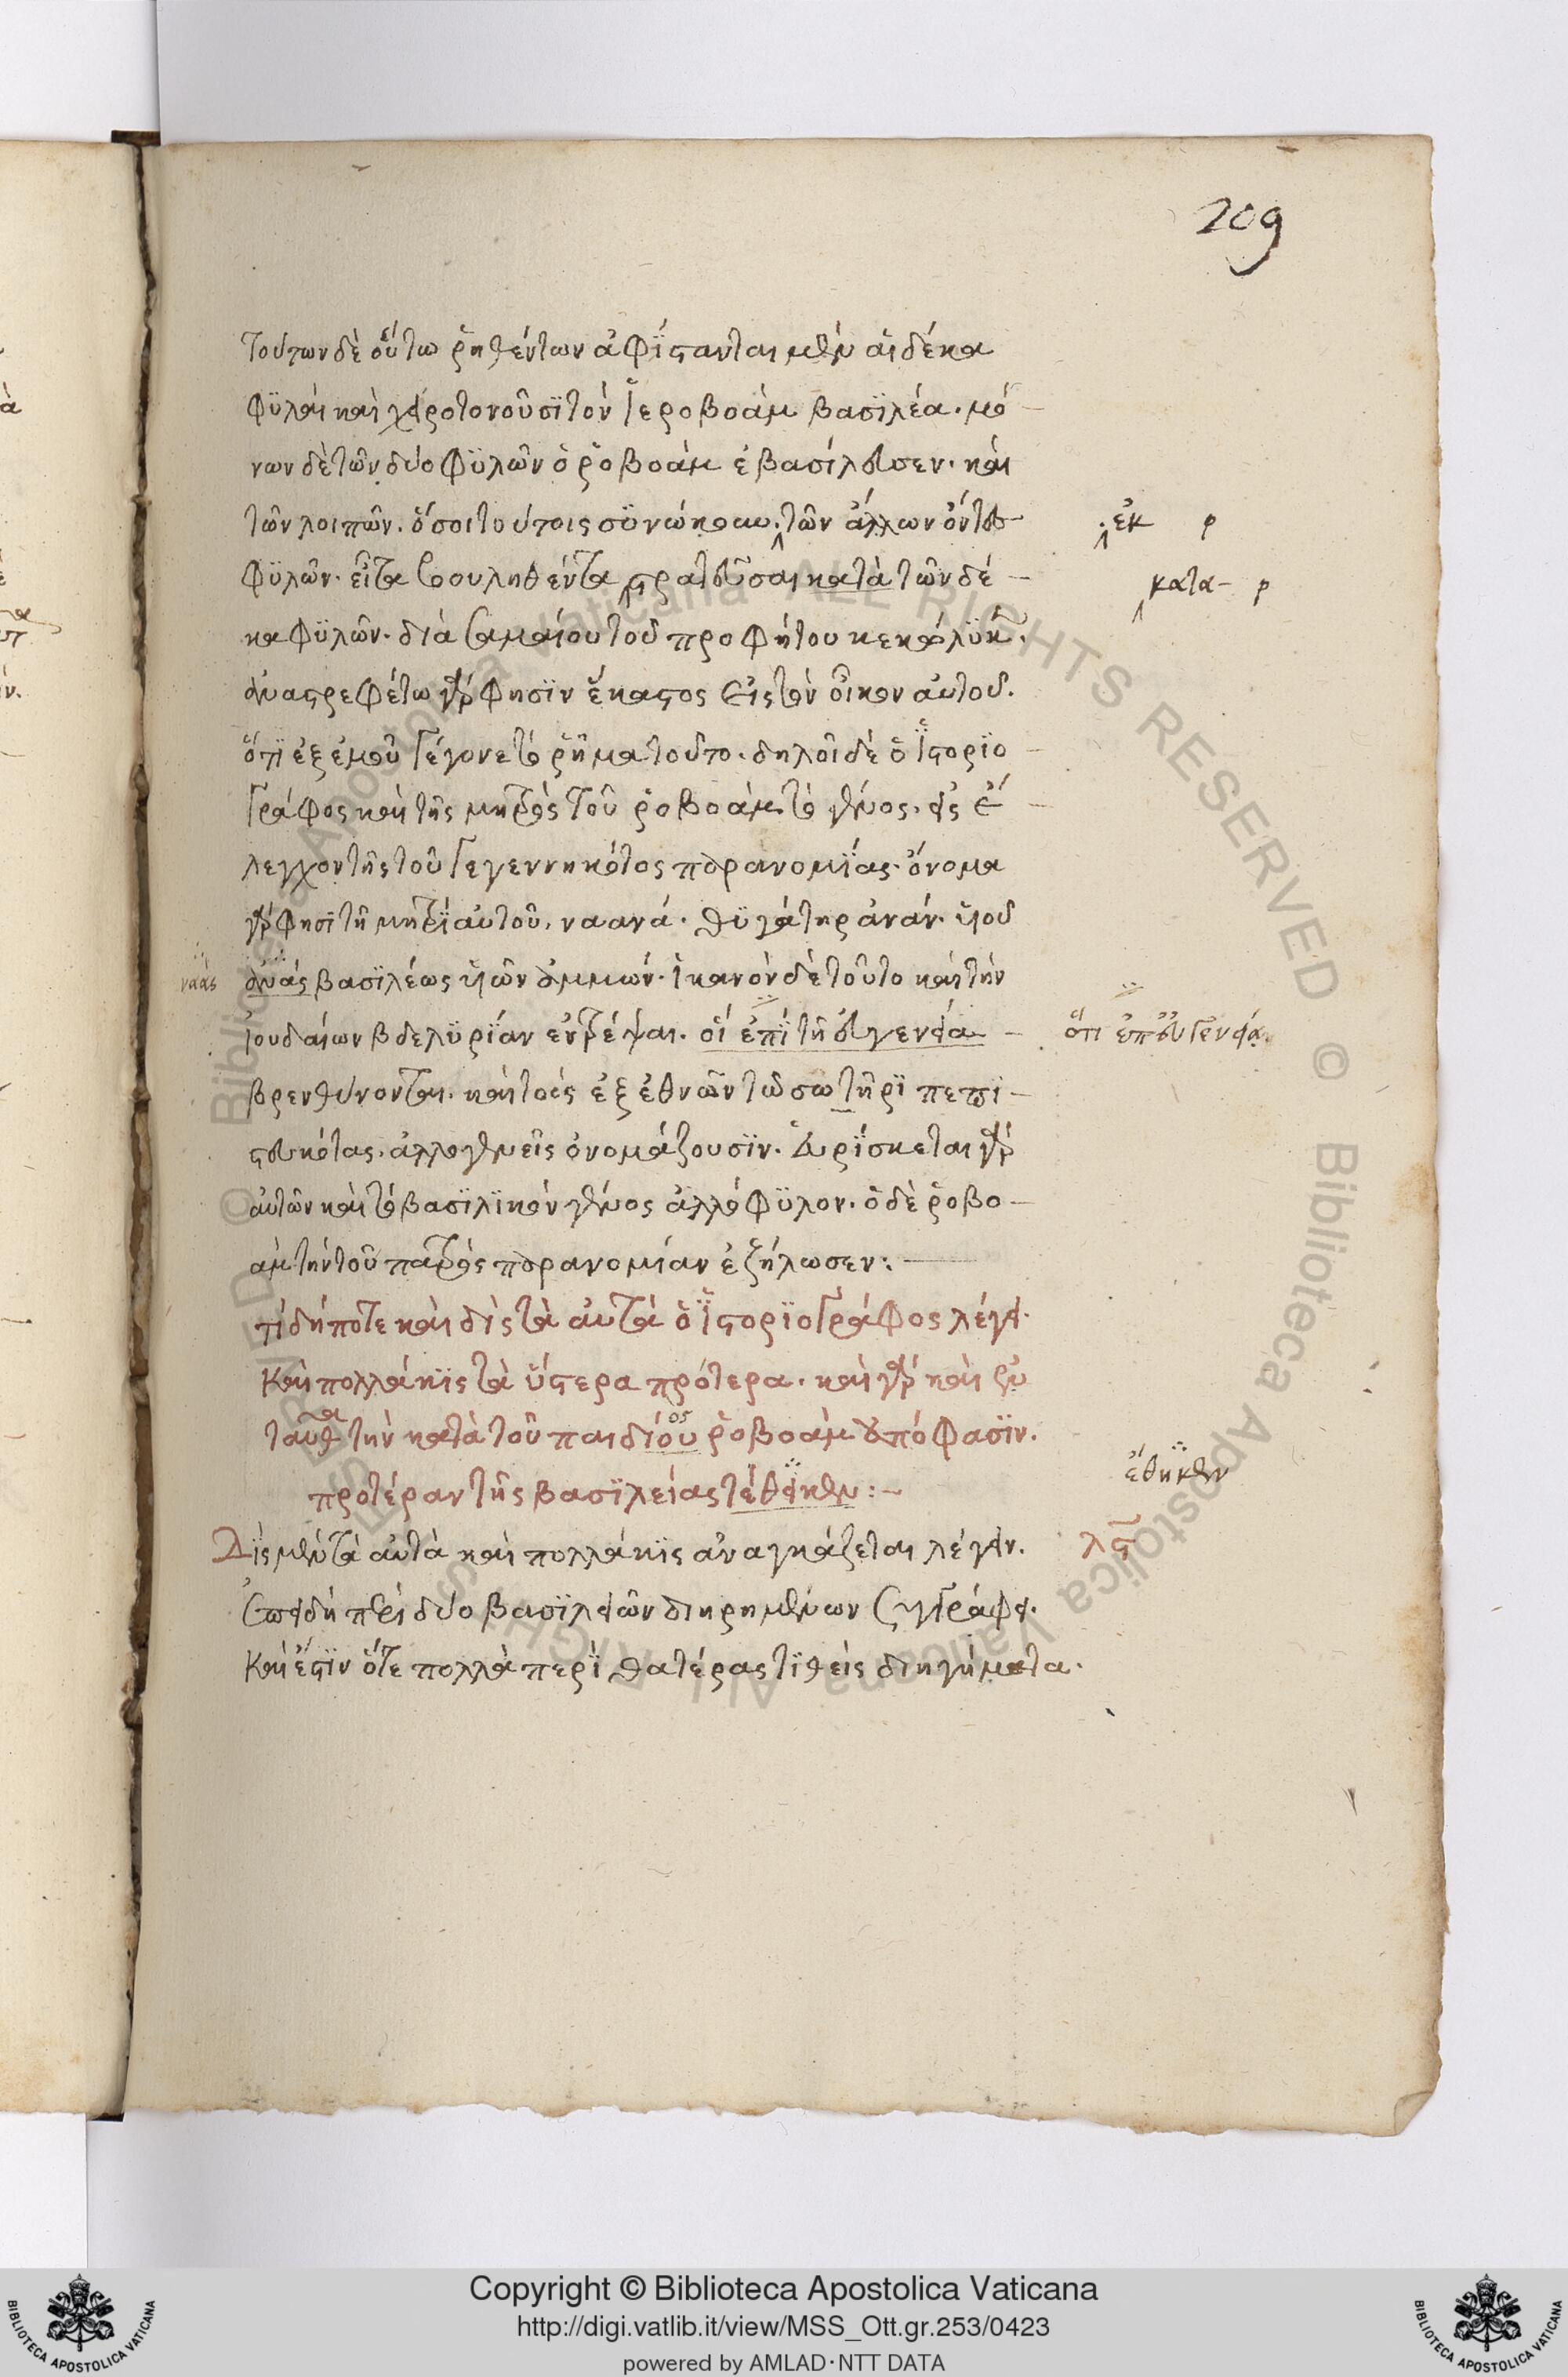 209
Τούτων δὲ οὕτω ῥηθέντων ἀφΐστανται μὲν αἱ δέκα
φϋλαὶ καὶ χειροτονοῦσϊ τὸν Ἱεροβοὰμ βασϊλέα. μό-
νων δὲ τῶν δύο φϋλῶν ὁ ῥοβοὰμ ἐβασίλευσεν. καὶ
τῶν λοιπῶν. ὅσοι τούτοις σϋνώκουν. τῶν ἄλλων ὄντες
ἐκ ρ
φϋλῶν. εἶτα βουληθέντα στρατεῦσαι κατὰ τῶν δέ-
κατα- ρ
κα φϋλῶν. διὰ Σαμαίου τοῦ προφήτου κεκώλϋκε.
ἀναστρεφέτω γάρ φησϊν ἕκαστος εἰς τὸν οἶκον αὐτοῦ.
ὅτϊ ἐξ ἐμοῦ γέγονε τὸ ῥῆμα τοῦτο. δηλοῖ δὲ ὁ ἱστορϊο-
γράφος καὶ τῆς μητρὸς τοῦ ῥοβοὰμ τὸ γένος. εἰς ἔ-
λεγχον τῆς τοῦ γεγεννηκότος παρανομΐας. ὄνομα
γάρ φησϊ τῇ μητρῒ αὐτοῦ. ναανά. θϋγάτηρ ἀνάν. υἱοῦ
ναὰς
ἀνάς βασϊλέως υἱῶν ἀμμών. ἱκανὸν δὲ τοῦτο καὶ τὴν
ἰουδαίων βδελϋρΐαν ἐντρέψαι. οἳ ἐπῒ τῇ εὐγενείᾳ
ὅτι ἐπ' εὐγενείᾳ
βρενθύονται. καὶ τοὺς ἐξ ἐθνῶν τῷ σωτῆρϊ πεπϊ-
στευκότας. ἀλλογενεῖς ὀνομάζουσϊν. εὑρΐσκεται γὰρ
αὐτῶν καὶ τὸ βασϊλϊκὸν γένος ἀλλόφϋλον. ὁ δὲ ῥοβο-
ὰμ τὴν τοῦ πατρὸς παρανομίαν ἐζήλωσεν:
τί δήποτε καὶ δὶς τὰ αὐτὰ ὁ ἱστορϊογράφος λέγει.
Καὶ πολλάκϊς τὰ ὕστερα πρότερα. καὶ γὰρ καὶ
ταῦθα τὴν κατὰ τοῦ παιδίου ῥοβοὰμ ἀπόφασϊν.
ος
ἔθηκεν
προτέραν τῆς βασϊλείας τέθεικεν:
Δὶς μὲν τὰ αὐτὰ καὶ πολλάκϊς ἀναγκάζεται λέγειν.
λϛ
ἐπειδὴ περὶ δύο βασϊλειῶν διηρημένων συγγράφει.
Καὶ ἔστϊν ὅτε πολλὰ περῒ θατέρας τϊθεὶς διηγήματα.
Copyright © Biblioteca Apostolica Vaticana
http://digi.vatlib.it/view/MSS_Ott.gr.253/0423
powered by AMLAD·NTT DATA